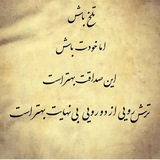 تلخ باش
اما خودت باش
این صداقت بهتر است
ترش رویی از دورویی بی نهایت بهتر است